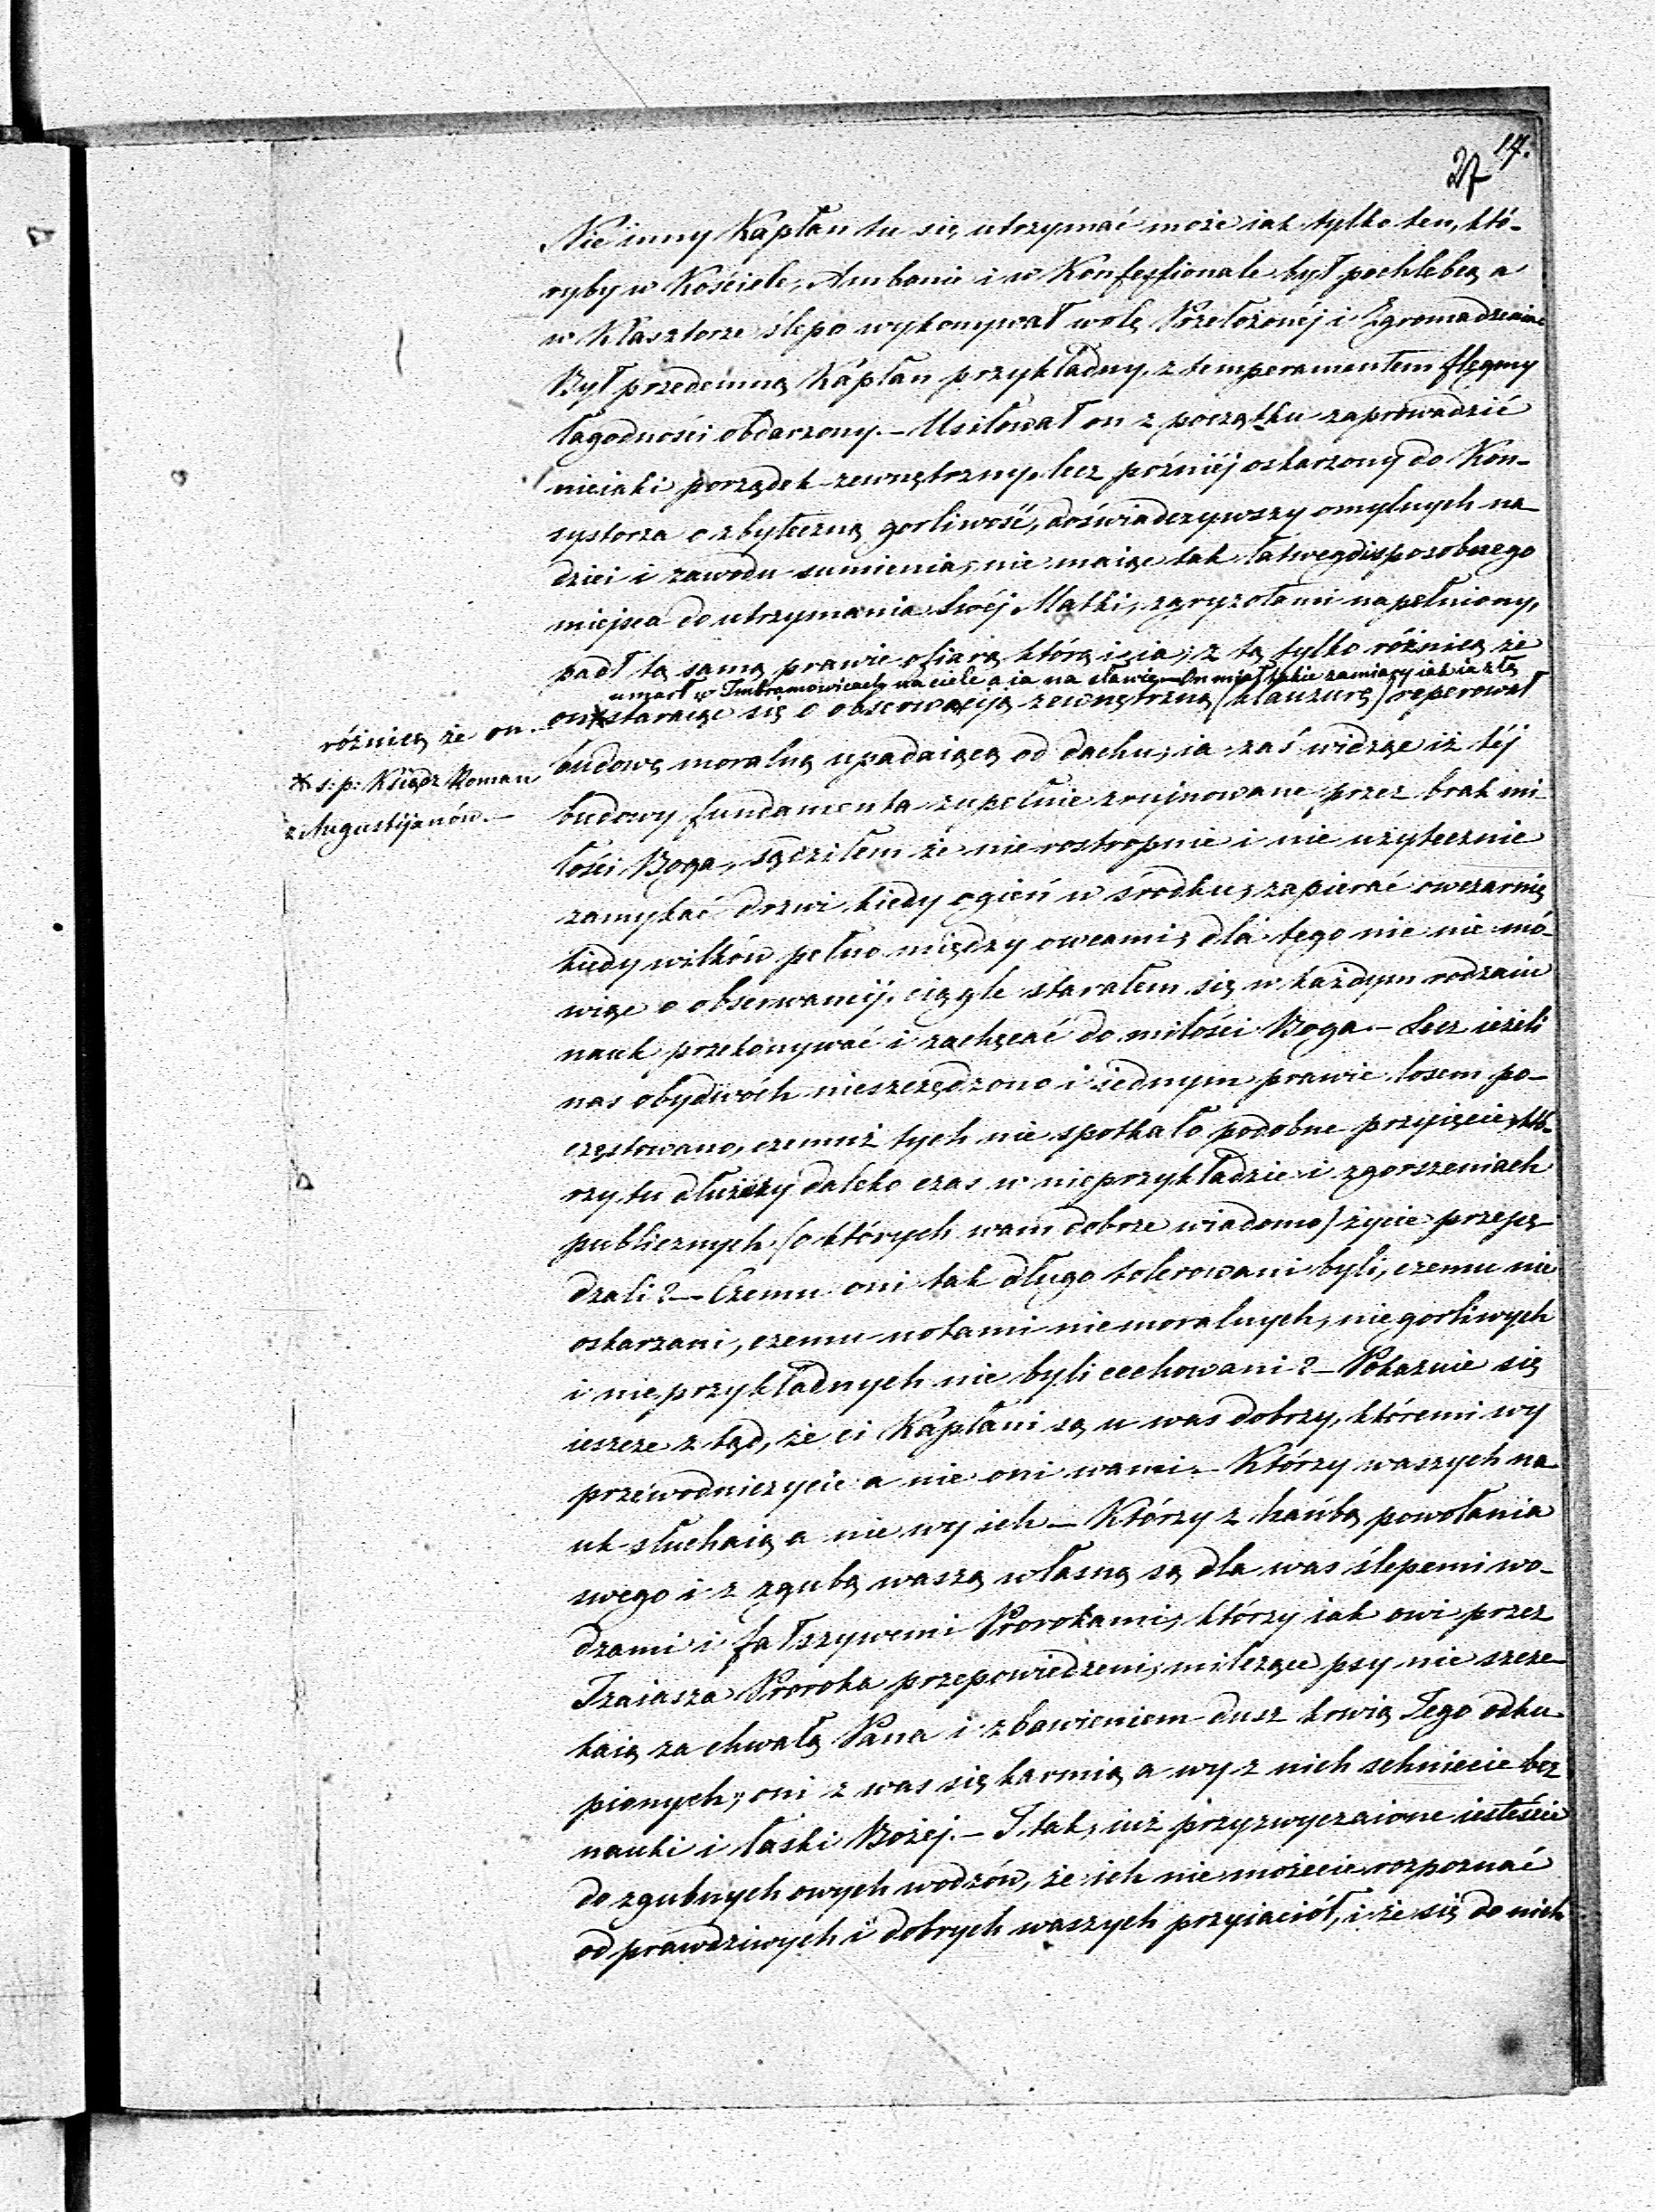 27 17.
Nie inny Kapłan tu się utrzymać może iak tylko ten, któ-
ryby w Kościele, Ambonie i w Konfessionale był pochlebcą a
w Klasztorze ślepo wykonywał wolę Przełożonéj i Zgromadzenia
Był przedemną Kapłan przykładny, z temperamentem flegmy
łagodności obdarzony. – Usiłował on z początku zaprowadzić
nieiaki porządek zewnętrzny, lecz późniéj oskarzony do Kon-
systorza o zbyteczną gorliwość, doświadczywszy omylnych na-
dziei i zawodu sumienia, nie maiąc tak łatwego sposobnego
miejsca do utrzymania Swéj Matki, zgryzotami napełniony,
padł tą samą prawie ofiarą którą i ia; z tą tylko różnicą że
umarł w Imbramowicach na ciele a ia na sławie – On miał takie zamiary iak ia z tą
różnicą że on –
on * staraiąc się o obserwacyją zewnętrzną (klauzurę) reperował
* ś: p: Ksiądz Roman
z Augustyjanów. –
budowę moralną upadaiącą od dachu, ia zaś widząc iż téj
budowy fundamenta zupełnie zrujnowane przez brak mi-
łości Boga, sądziłem że nierostropnie i nie użytecznie
zamykać drzwi kiedy ogień w środku, zapierać owczarnię
kiedy wilków pełno między owcami, dla tego nic nie mó-
wiąc o obserwancij, ciągle starałem się w każdym rodzaiu
nauk przekonywać i zachęcać do miłości Boga. – Lecz ieżeli
nas obydwóch nieszczędzono i iednym prawie losem po-
częstowano, czemuż tych nie spotkało podobne przyięcie, któ-
rzy tu dłuższy daleko czas w nieprzykładzie i zgorszeniach
publicznych (o których wam dobrze wiadomo) życie przepę-
dzali? – Czemu oni tak długo tolerowani byli, czemu nie
oskarzani, czemu notami niemoralnych, niegorliwych
i nieprzykładnych nie byli cechowani? – Pokazuie się
ieszcze z tąd, że ci Kapłani są u was dobrzy, któremi wy
przewodniczycie a nie oni wami. – Którzy waszych na-
uk słuchaią a nie wy ich – Którzy z hańbą powołania
swego i z zgubą waszą własną są dla was ślepemi wo-
dzami i fałszywemi Prorokami, którzy iak owi przez
Izaiasza Proroka przepowiedzeni, milczące psy nie szcze-
kaią za chwałą Pana i zbawieniem dusz krwią Jego odku-
pionych, oni z was się karmią a wy z nich schniecie bez
nauki i łaski Bożej. – I tak, iuż przyzwyczaione iesteście
do zgubnych owych wodzów, że ich nie możecie rozpoznać
od prawdziwych i dobrych waszych przyiaciół, i że się do nich